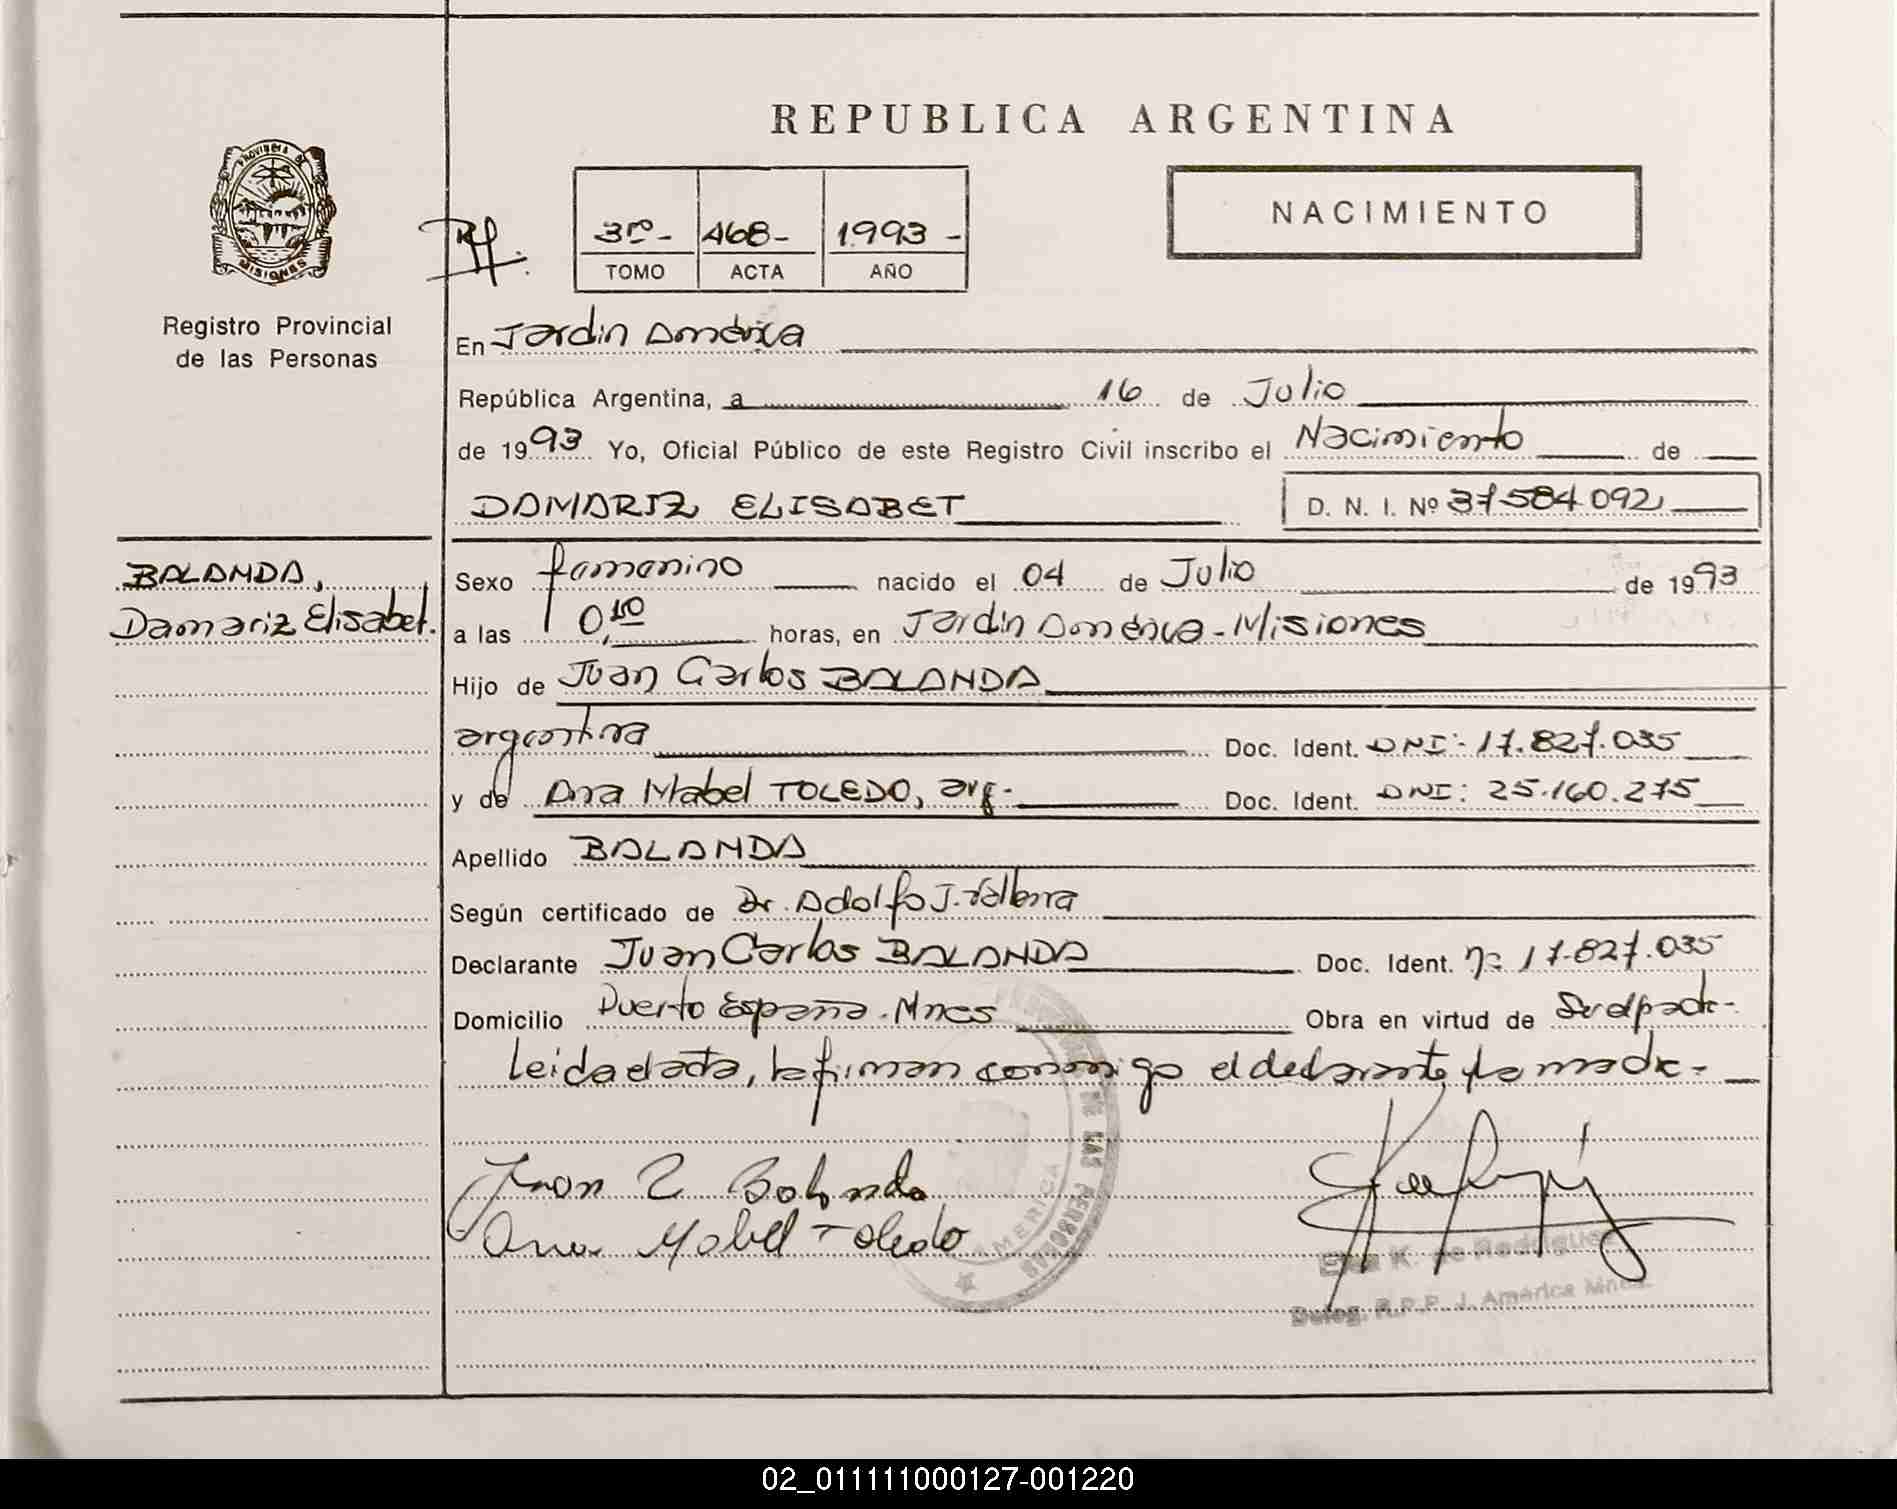 REPUBLICA ARGENTINA
PROVINCIA DE
MISIONES
Registro Provincial
de las Personas
3ro - 468 - 1993 -
TOMO ACTA AÑO
NACIMIENTO
En Jardin América
República Argentina, a 16 de Julio
de 1993 Yo, Oficial Público de este Registro Civil inscribo el Nacimiento de
DAMARIZ ELISABET D. N. I. Nº 37.584.092
BALANDA,
Damariz Elisabet.
Sexo femenino nacido el 04 de Julio de 1993
a las 0,10 horas, en Jardin América - Misiones
Hijo de Juan Carlos BALANDA
argentina Doc. Ident. DNI: 17.827.035
y de Ana Mabel TOLEDO, arg. Doc. Ident. DNI: 25.160.275
Apellido BALANDA
Según certificado de Dr. Adolfo J.
Declarante Juan Carlos BALANDA Doc. Ident. nº 17.827.035
Domicilio Puerto España - Mnes Obra en virtud de Ser el padre-
Leida el acta, la firman conmigo el declarante y la madre -
Juan C Balanda
Ana Mabel Toledo
DE LAS PERSONAS
AMERICA
K. de Rodriguez
Deleg. R.P.P. J. América Mnes.
02_011111000127-001220